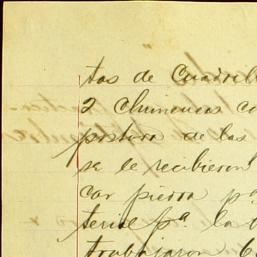 tas de Cuadril
2 chimeneas co
postura de las
se le recibieron
car piedra pª
terial pª la t
trabajaron 6